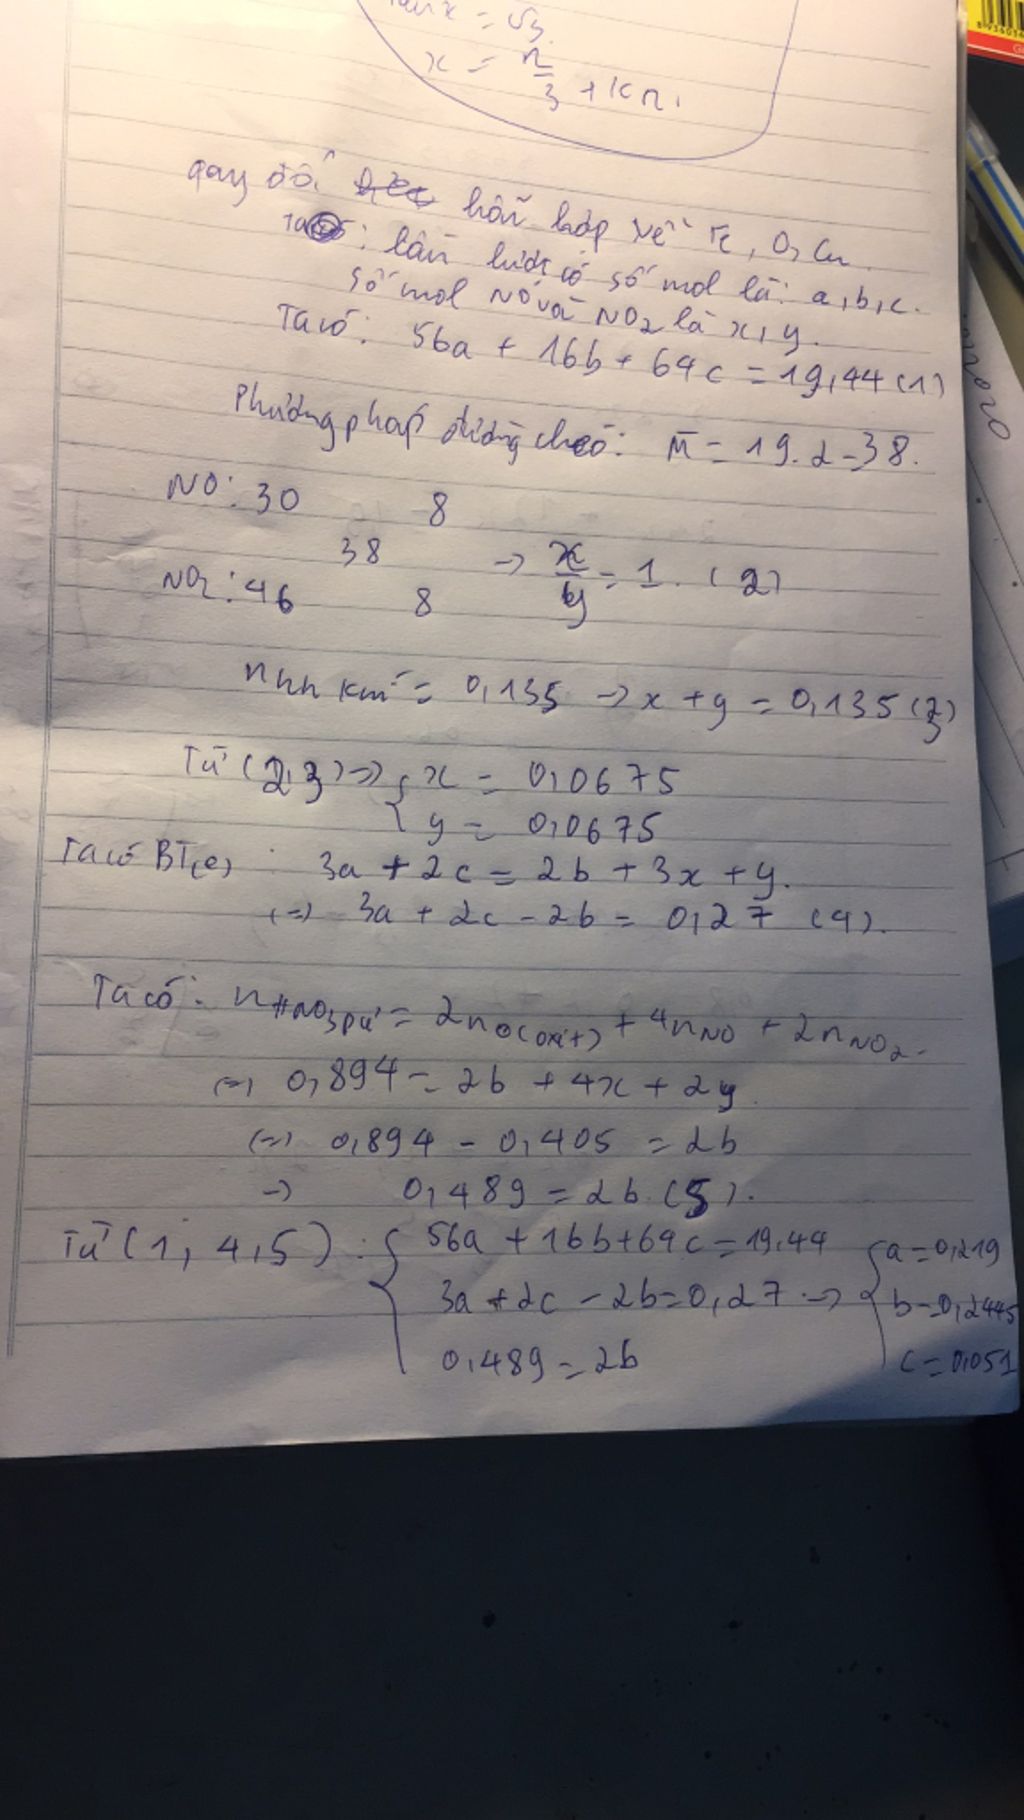 tanx = √3.
x = π/3 + kπ.
quy đổi hỗn hợp về Fe, O, Cu.
: lần lượt có số mol là: a, b, c.
số mol NO và NO2 là x, y.
Ta có: 56a + 16b + 64c = 19,44 (1)
Phương pháp đường chéo: M̄ = 19.2 = 38.
NO: 30 8
38 → x/y = 1. (2)
NO2: 46 8
nhh khí = 0,135 → x + y = 0,135 (3)
Từ (2,3) => { x = 0,0675
y = 0,0675
Ta có BT(e) : 3a + 2c = 2b + 3x + y.
(=) 3a + 2c - 2b = 0,27 (4).
Ta có: nHNO3 pứ = 2nO(oxit) + 4nNO + 2nNO2.
(=) 0,894 = 2b + 4x + 2y
(=) 0,894 - 0,405 = 2b
→ 0,489 = 2b (5).
Từ (1, 4,5) : { 56a + 16b + 64c = 19,44 { a = 0,219
3a + 2c - 2b = 0,27 → b = 0,2445
0,489 = 2b c = 0,051